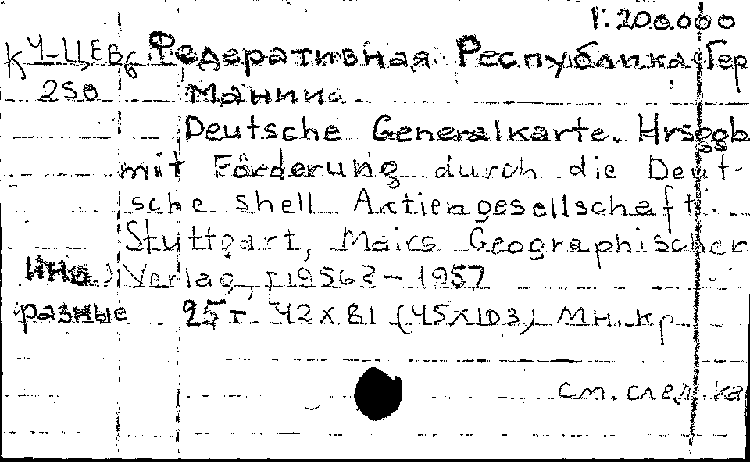 1:200000
К Ч-ЦЕВр Федеративная Республика Гер
250 мания.
Deutsche Generalkarte. Hrsggb
mit Förderung durch die Deut-
sche Shell Aktiengesellschaft.
Stuttgart, Mairs Geographischer
Verlag, [1956?-1957
разные 25 г. 42x81 (45x103) Мн. кр
см. след. ка